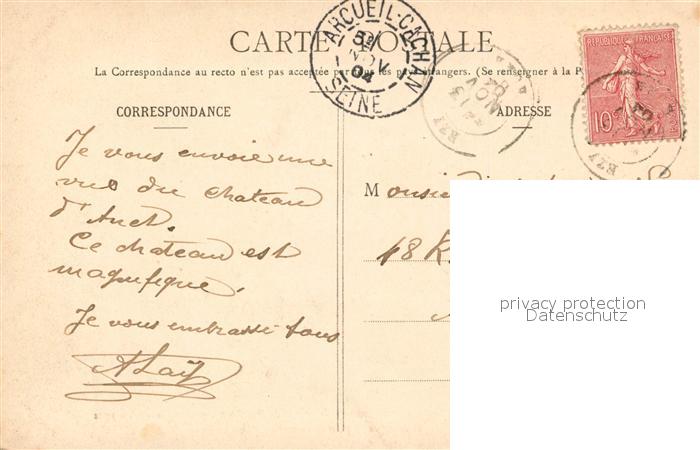 CARTE POSTALE
La Correspondance au recto n'est pas acceptée par tous les pays étrangers. (Se renseigner à la P
CORRESPONDANCE
ADRESSE
ARCUEIL-CACHAN
NOV
04
SEINE
13
NOV
04
EZY
REPUBLIQUE FRANÇAISE
10
EZY
Je vous envoie une
vue du chateau
d'Anet.
Ce chateau est
magnifique.
Je vous embrasse tous
Monsie
48 R
privacy protection
Datenschutz